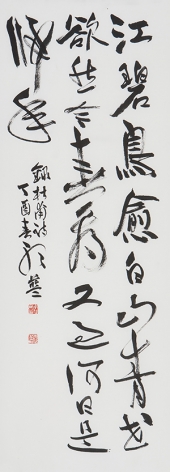 江碧鳥愈白山青花
欲然今春看又過何日是
歸年
錄杜甫詩
丁酉春